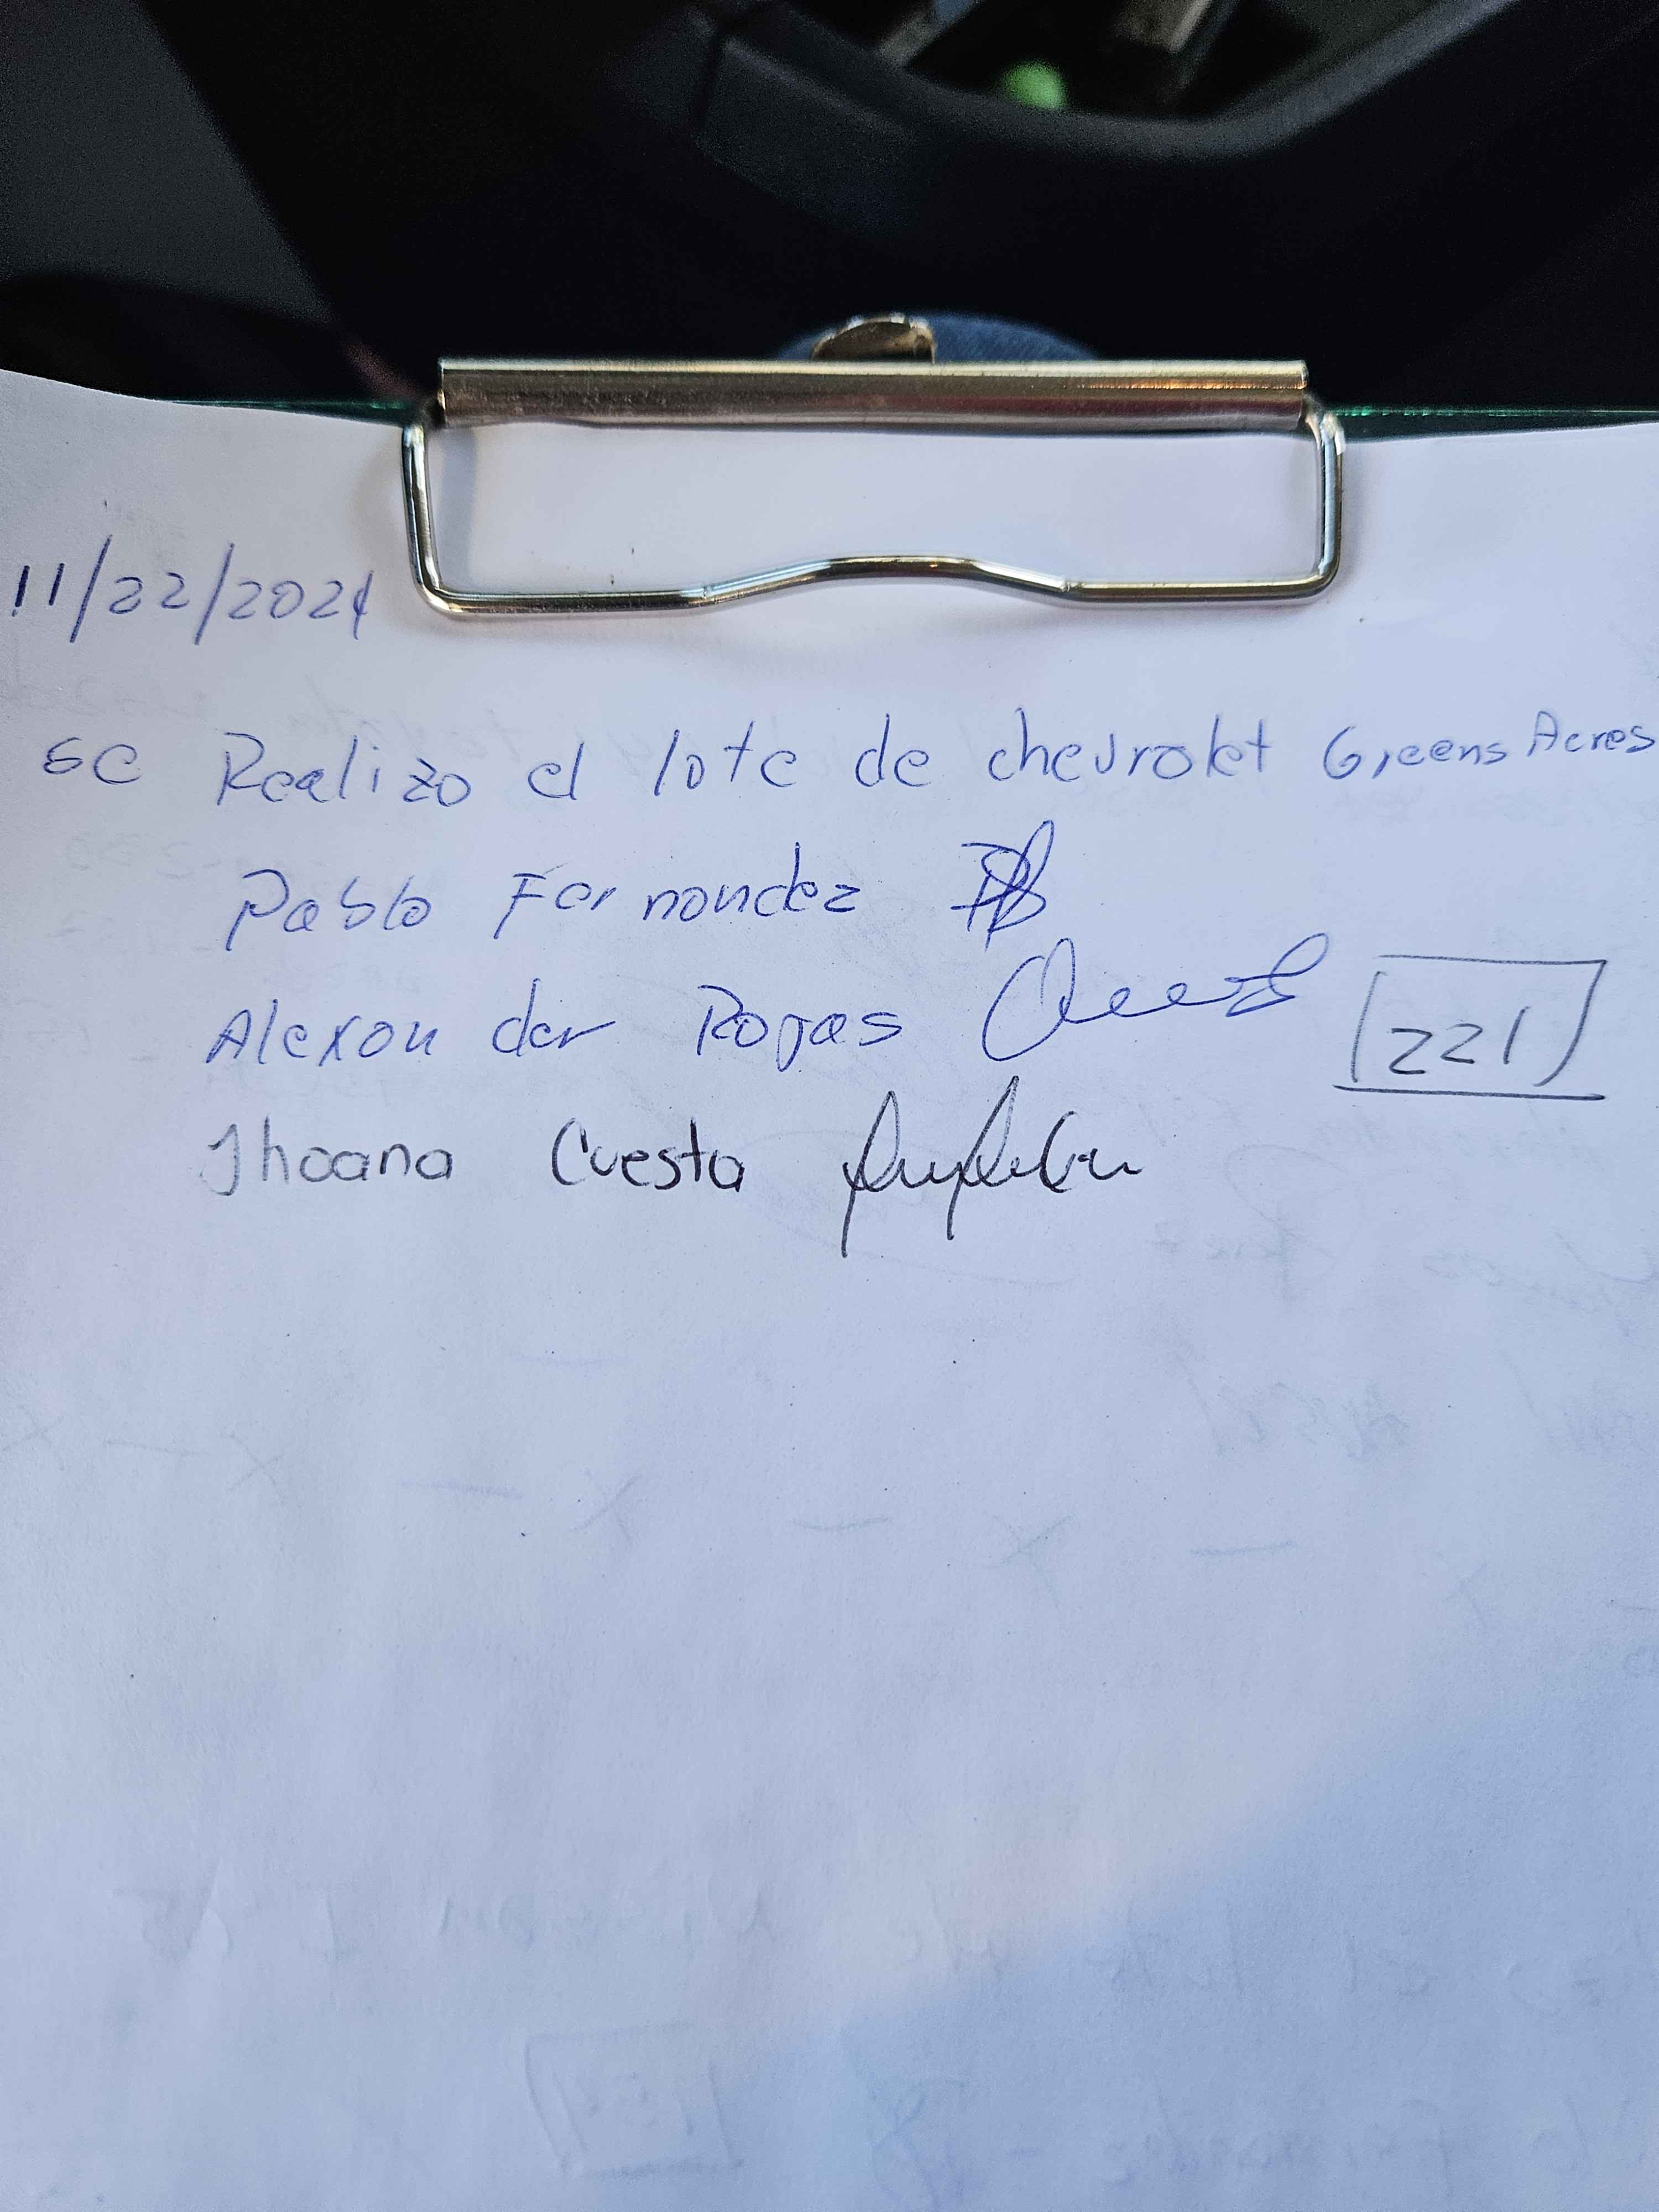 11/22/2024
SC Realizo el lote de chevrolet Greens Acres
Pablo Fernandez
Alexander Rojas
221
Jhoana Cuesta